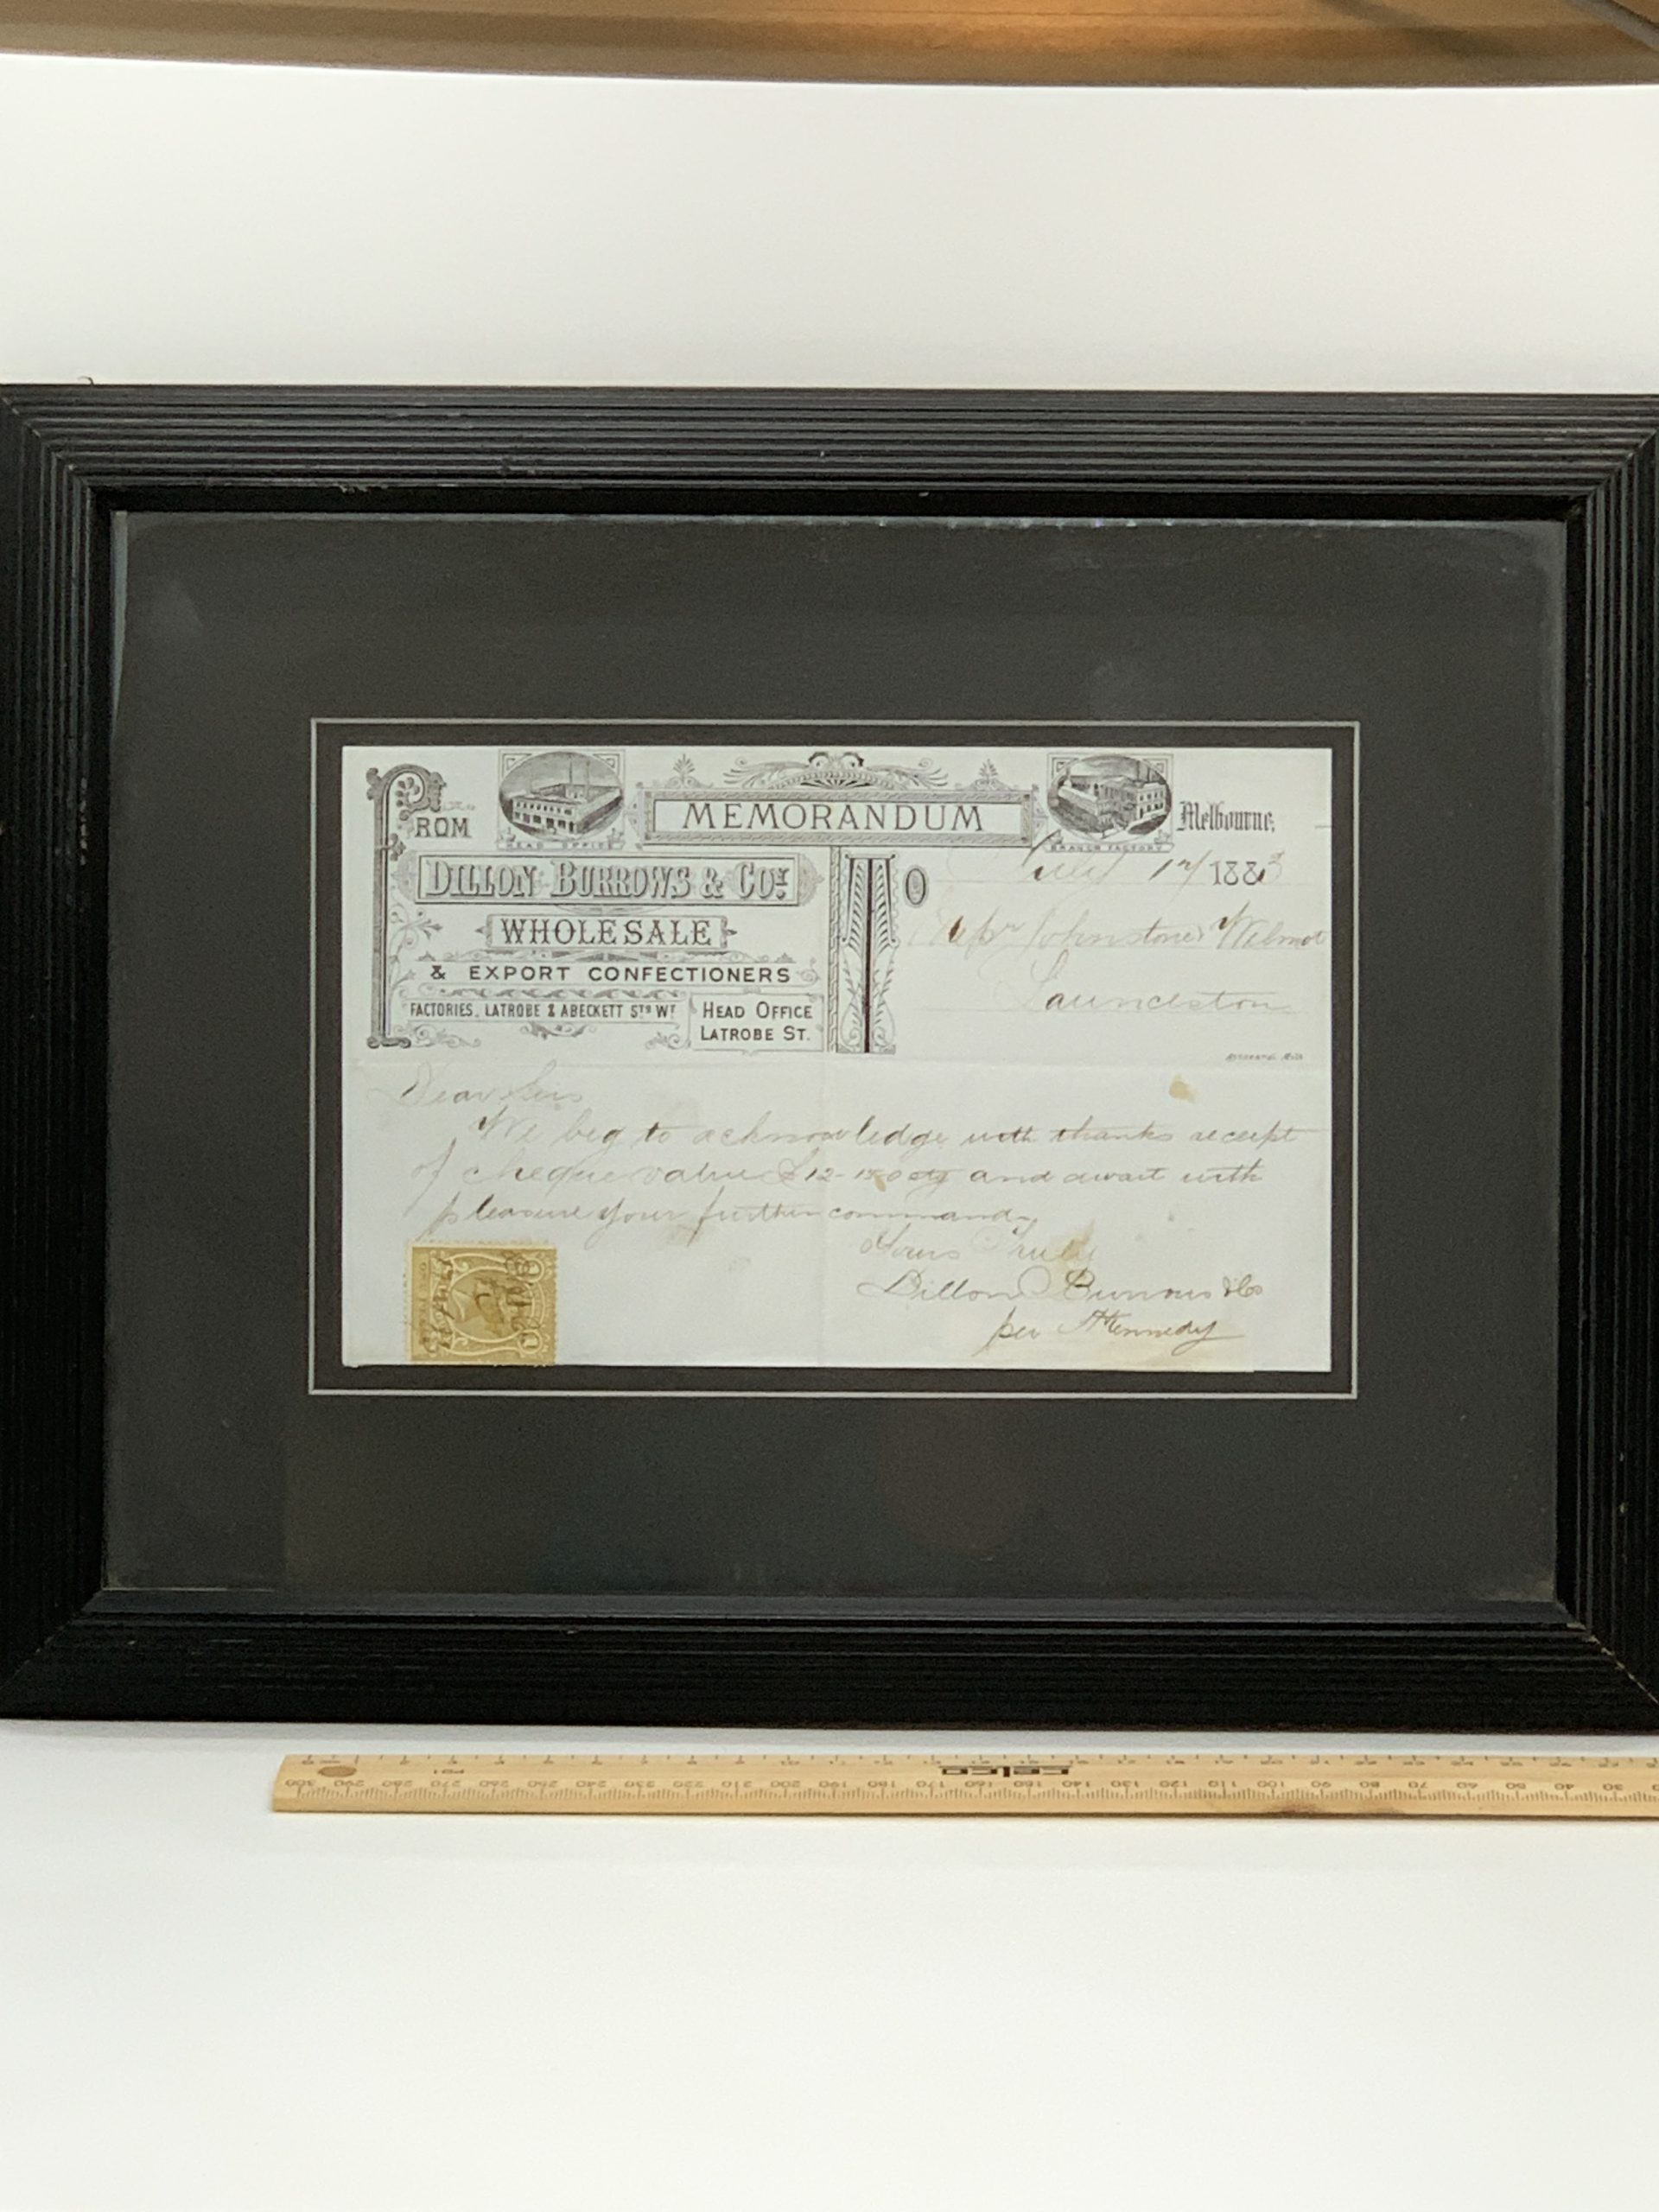 FROM
HEAD OFFICE
MEMORANDUM
BRANCH FACTORY
Melbourne,
DILLON BURROWS & COY.
WHOLESALE
& EXPORT CONFECTIONERS
FACTORIES, LATROBE & ABECKETT STS WT
HEAD OFFICE
LATROBE ST.
TO
17 1883
Johnstone & Wilmot
Launceston
Dear Sirs
We beg to acknowledge with thanks receipt
of cheque value £12- and await with
pleasure your further commands
Yours Truly
Dillon Burrows & Co
per Kennedy
celco
300 290 280 270 260 250 240 230 220 210 200 190 180 170 160 150 140 130 120 110 100 90 80 70 60 50 40 30